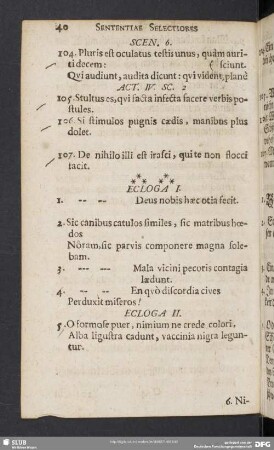 40 SENTENTIAE SELECTIORES
SCEN. 6.
104. Pluris est oculatus testis unus, quàm auri-
ti decem: ( sciunt.
Qvi audiunt, audita dicunt: qvi vident, planè
ACT. IV. SC. 2
105. Stultus es, qvi facta infecta facere verbis po-
stules.
106. Si stimulos pugnis cædis, manibus plus
dolet.
107. De nihilo illi est irasci, qui te non flocci
facit.
ECLOGA I.
1. --- --- Deus nobis hæc otia fecit.
2. Sic canibus catulos similes, sic matribus hœ-
dos
Nôram. sic parvis componere magna sole-
bam.
3. --- --- Mala vicini pecoris contagia
lædunt.
4. --- --- En qvò discordia cives
Perduxit miseros!
ECLOGA II.
5. O formose puer, nimium ne crede colori.
Alba ligustra cadunt, vaccinia nigra legun-
tur.
6. Ni-
SLUB
DFG